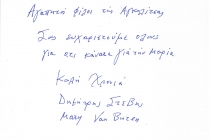 Αγαπητοί φίλοι της Αγκαλίτσας
Σας ευχαριστούμε όλους
για ότι κάνατε για την Μαρία
Καλή Χρονιά
Δημήτρης
Mary Van Buren